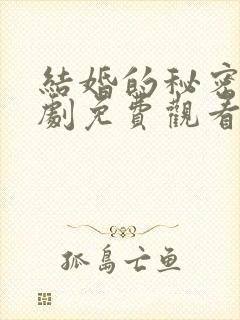 結婚的秘密
劇免費觀看
孤島亡鱼